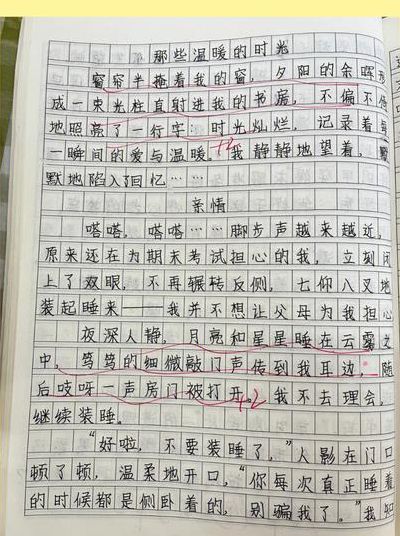 那些温暖的时光
窗帘半掩着我的窗,夕阳的余晖形
成一束光柱直射进我的书房,不偏不倚
地照亮了一行字:时光灿烂,记录着每
一瞬间的爱与温暖。我静静地望着,默
默地陷入了回忆……
亲情
嗒嗒,嗒嗒……脚步声越来越近,
原来还在为期末考试担心的我,立刻闭
上了双眼,不再辗转反侧,七仰八叉地
装起睡来——我并不想让父母为我担心
夜深人静,月亮和星星睡在云雾之
中,笃笃的细微敲门声传到我耳边,随
后吱呀一声房门被打开。我不去理会,
继续装睡。
“好啦,不要装睡了,”人影在门口
顿了顿,温柔地开口,“你每次真正睡着
的时候都是侧卧着的,别骗我了。”我知
+2
+2